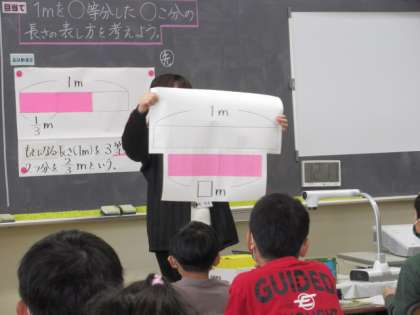 目当て
1mを◯等分した◯こ分の
長さの表し方を考えよう。
先
1m
1/3 m
もとになる長さ(1m)を3等
2つ分を2/3mという。
1m
□m
GUIDED